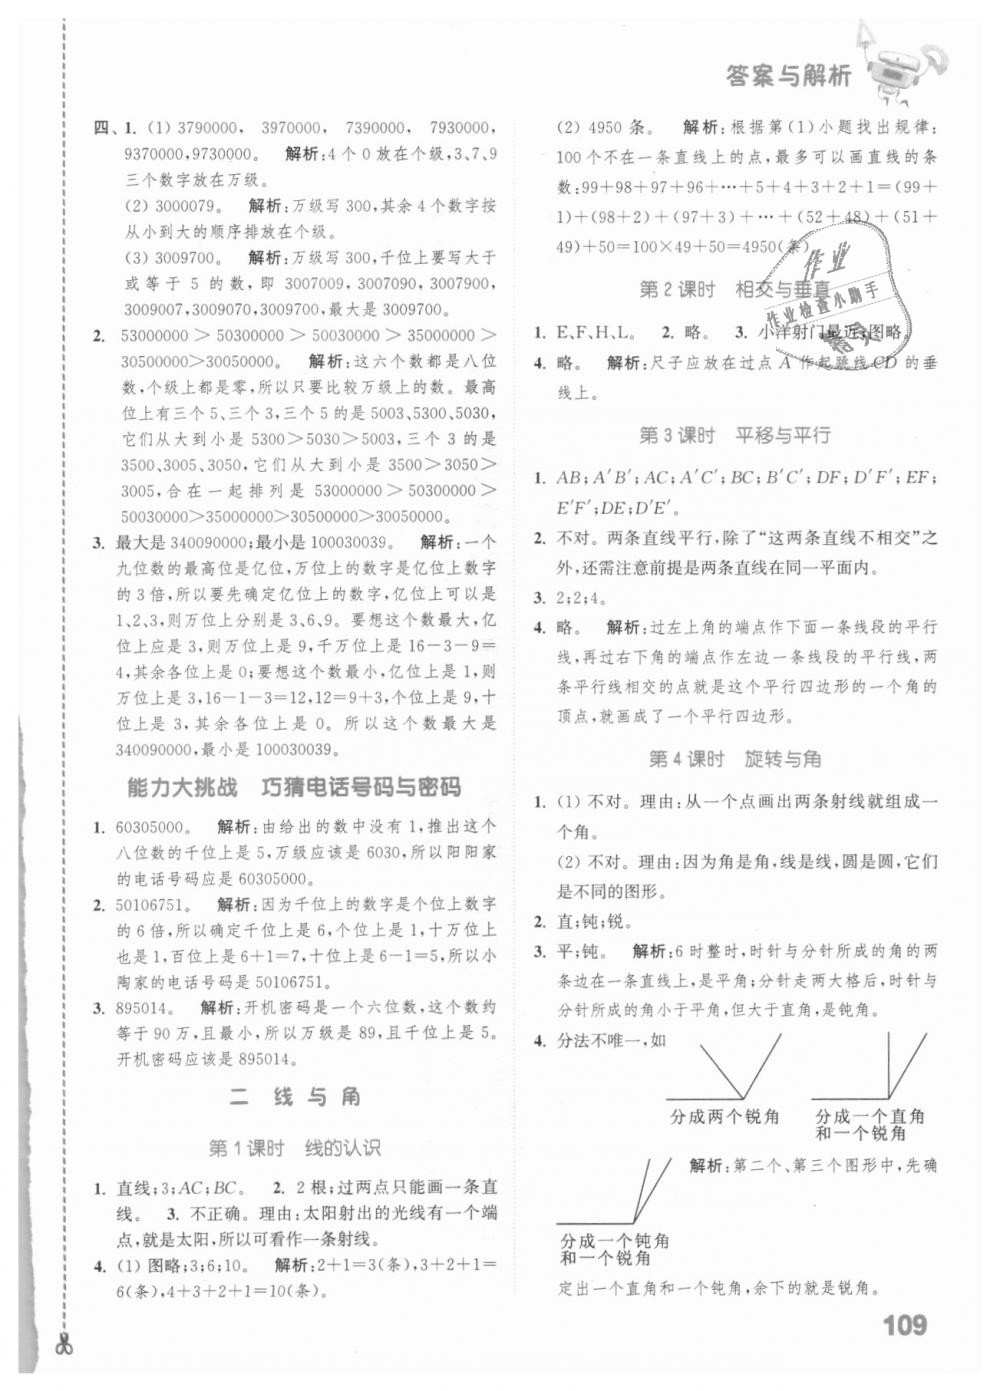 答案与解析
四、1. (1) 3790000, 3970000, 7390000, 7930000,
9370000,9730000。 解析:4 个 0 放在个级,3、7、9
三个数字放在万级。
(2) 3000079。 解析:万级写 300,其余 4 个数字按
从小到大的顺序排放在个级。
(3) 3009700。 解析:万级写 300,千位上要写大于
或等于 5 的数,即 3007009,3007090,3007900,
3009007,3009070,3009700,最大是 3009700。
2. 53000000 > 50300000 > 50030000 > 35000000 >
30500000>30050000。 解析:这六个数都是八位
数,个级上都是零,所以只要比较万级上的数。最高
位上有三个 5、三个 3,三个 5 的是 5003、5300、5030,
它们从大到小是 5300>5030>5003,三个 3 的是
3500、3005、3050,它们从大到小是 3500>3050>
3005,合在一起排列是 53000000>50300000>
50030000>35000000>30500000>30050000。
3. 最大是 340090000;最小是 100030039。 解析:一个
九位数的最高位是亿位,万位上的数字是亿位上数字
的 3 倍,所以要先确定亿位上的数字,亿位上可以是
1、2、3,则万位上分别是 3、6、9。要想这个数最大,亿
位上应是 3,则万位上是 9,千万位上是 16-3-9=
4,其余各位上是 0;要想这个数最小,亿位上是 1,则
万位上是 3,16-1-3=12,12=9+3,个位上是 9,十
位上是 3,其余各位上是 0。所以这个数最大是
340090000,最小是 100030039。
能力大挑战 巧猜电话号码与密码
1. 60305000。 解析:由给出的数中没有 1,推出这个
八位数的千位上是 5,万级应该是 6030,所以阳阳家
的电话号码应是 60305000。
2. 50106751。 解析:因为千位上的数字是个位上数字
的 6 倍,所以确定千位上是 6,个位上是 1,十万位上
也是 1,百位上是 6+1=7,十位上是 6-1=5,所以小
陶家的电话号码是 50106751。
3. 895014。 解析:开机密码是一个六位数,这个数约
等于 90 万,且最小,所以万级是 89,且千位上是 5。
开机密码应该是 895014。
二 线与角
第 1 课时 线的认识
1. 直线;3;AC;BC。 2. 2 根;过两点只能画一条直
线。 3. 不正确。理由:太阳射出的光线有一个端
点,就是太阳,所以可看作一条射线。
4. (1) 图略;3;6;10。 解析:2+1=3(条),3+2+1=
6(条),4+3+2+1=10(条)。
(2) 4950 条。 解析:根据第(1)小题找出规律:
100 个不在一条直线上的点,最多可以画直线的条
数:99+98+97+96+…+5+4+3+2+1=(99+
1)+(98+2)+(97+3)+…+(52+48)+(51+
49)+50=100×49+50=4950(条)
第 2 课时 相交与垂直
1. E、F、H、L。 2. 略。 3. 小洋射门最近;图略
4. 略。 解析:尺子应放在过点 A 作起跳线 CD 的垂
线上。
第 3 课时 平移与平行
1. AB;A′B′;AC;A′C′;BC;B′C′;DF;D′F′;EF;
E′F′;DE;D′E′。
2. 不对。两条直线平行,除了“这两条直线不相交”之
外,还需注意前提是两条直线在同一平面内。
3. 2;2;4。
4. 略。 解析:过左上角的端点作下面一条线段的平行
线,再过右下角的端点作左边一条线段的平行线,两
条平行线相交的点就是这个平行四边形的一个角的
顶点,就画成了一个平行四边形。
第 4 课时 旋转与角
1. (1) 不对。理由:从一个点画出两条射线就组成一
个角。
(2) 不对。理由:因为角是角,线是线,圆是圆,它们
是不同的图形。
2. 直;钝;锐。
3. 平;钝。 解析:6 时整时,时针与分针所成的角的两
条边在一条直线上,是平角;分针走两大格后,时针与
分针所成的角小于平角,但大于直角,是钝角。
4. 分法不唯一,如
分成两个锐角
分成一个直角
和一个锐角
解析:第二个、第三个图形中,先确
分成一个钝角
和一个锐角
定出一个直角和一个钝角,余下的就是锐角。
109
作业
作业检查小助手